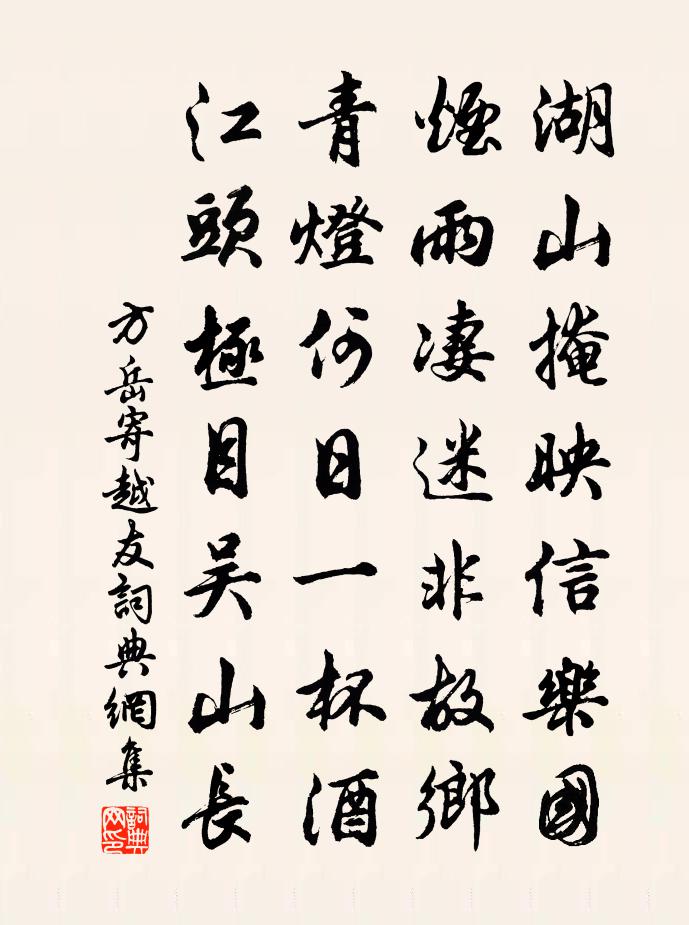 湖山掩映信樂國
煙雨凄迷非故鄉
青燈何日一杯酒
江頭極目吳山長
方岳寄越友詞典網集
詞典網印